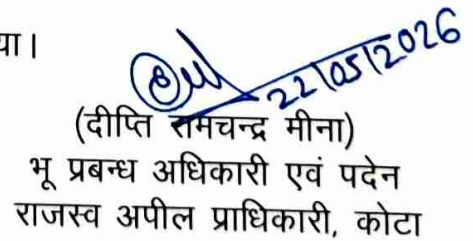 या।
22/05/2026
(दीप्ति रामचन्द्र मीना)
भू प्रबन्ध अधिकारी एवं पदेन
राजस्व अपील प्राधिकारी, कोटा